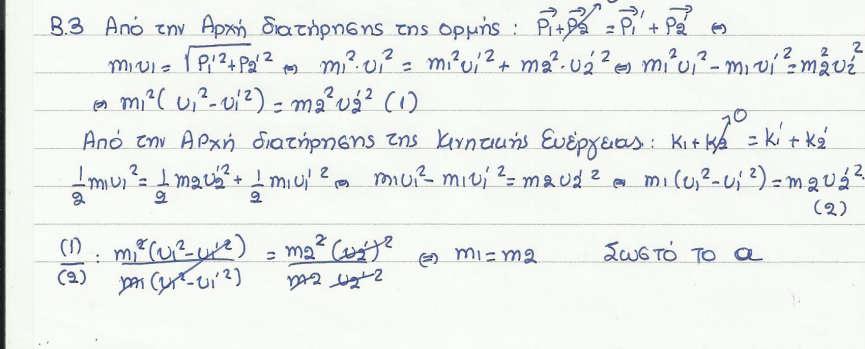 Β.3 Από την Αρχή διατήρησης της ορμής : p₁⃗ + p₂⃗ ⁰ = p₁⃗' + p₂⃗' ⇔
m₁υ₁ = √(p₁'² + p₂'²) ⇔ m₁²·υ₁² = m₁²υ₁'² + m₂²·υ₂'² ⇔ m₁²υ₁² - m₁υ₁'² = m₂²υ₂'²
⇔ m₁²(υ₁² - υ₁'²) = m₂²υ₂'² (1)
Από την Αρχή διατήρησης της Κινητικής Ενέργειας : K₁ + K₂ ⁰ = K₁' + K₂'
½m₁υ₁² = ½m₂υ₂'² + ½m₁υ₁'² ⇔ m₁υ₁² - m₁υ₁'² = m₂υ₂'² ⇔ m₁(υ₁² - υ₁'²) = m₂υ₂'²
(2)
(1)/(2) : m₁²(υ₁² - υ₁'²)/m₁(υ₁² - υ₁'²) = m₂²(υ₂')²/m₂ υ₂'² ⇔ m₁ = m₂ Σωστό το α